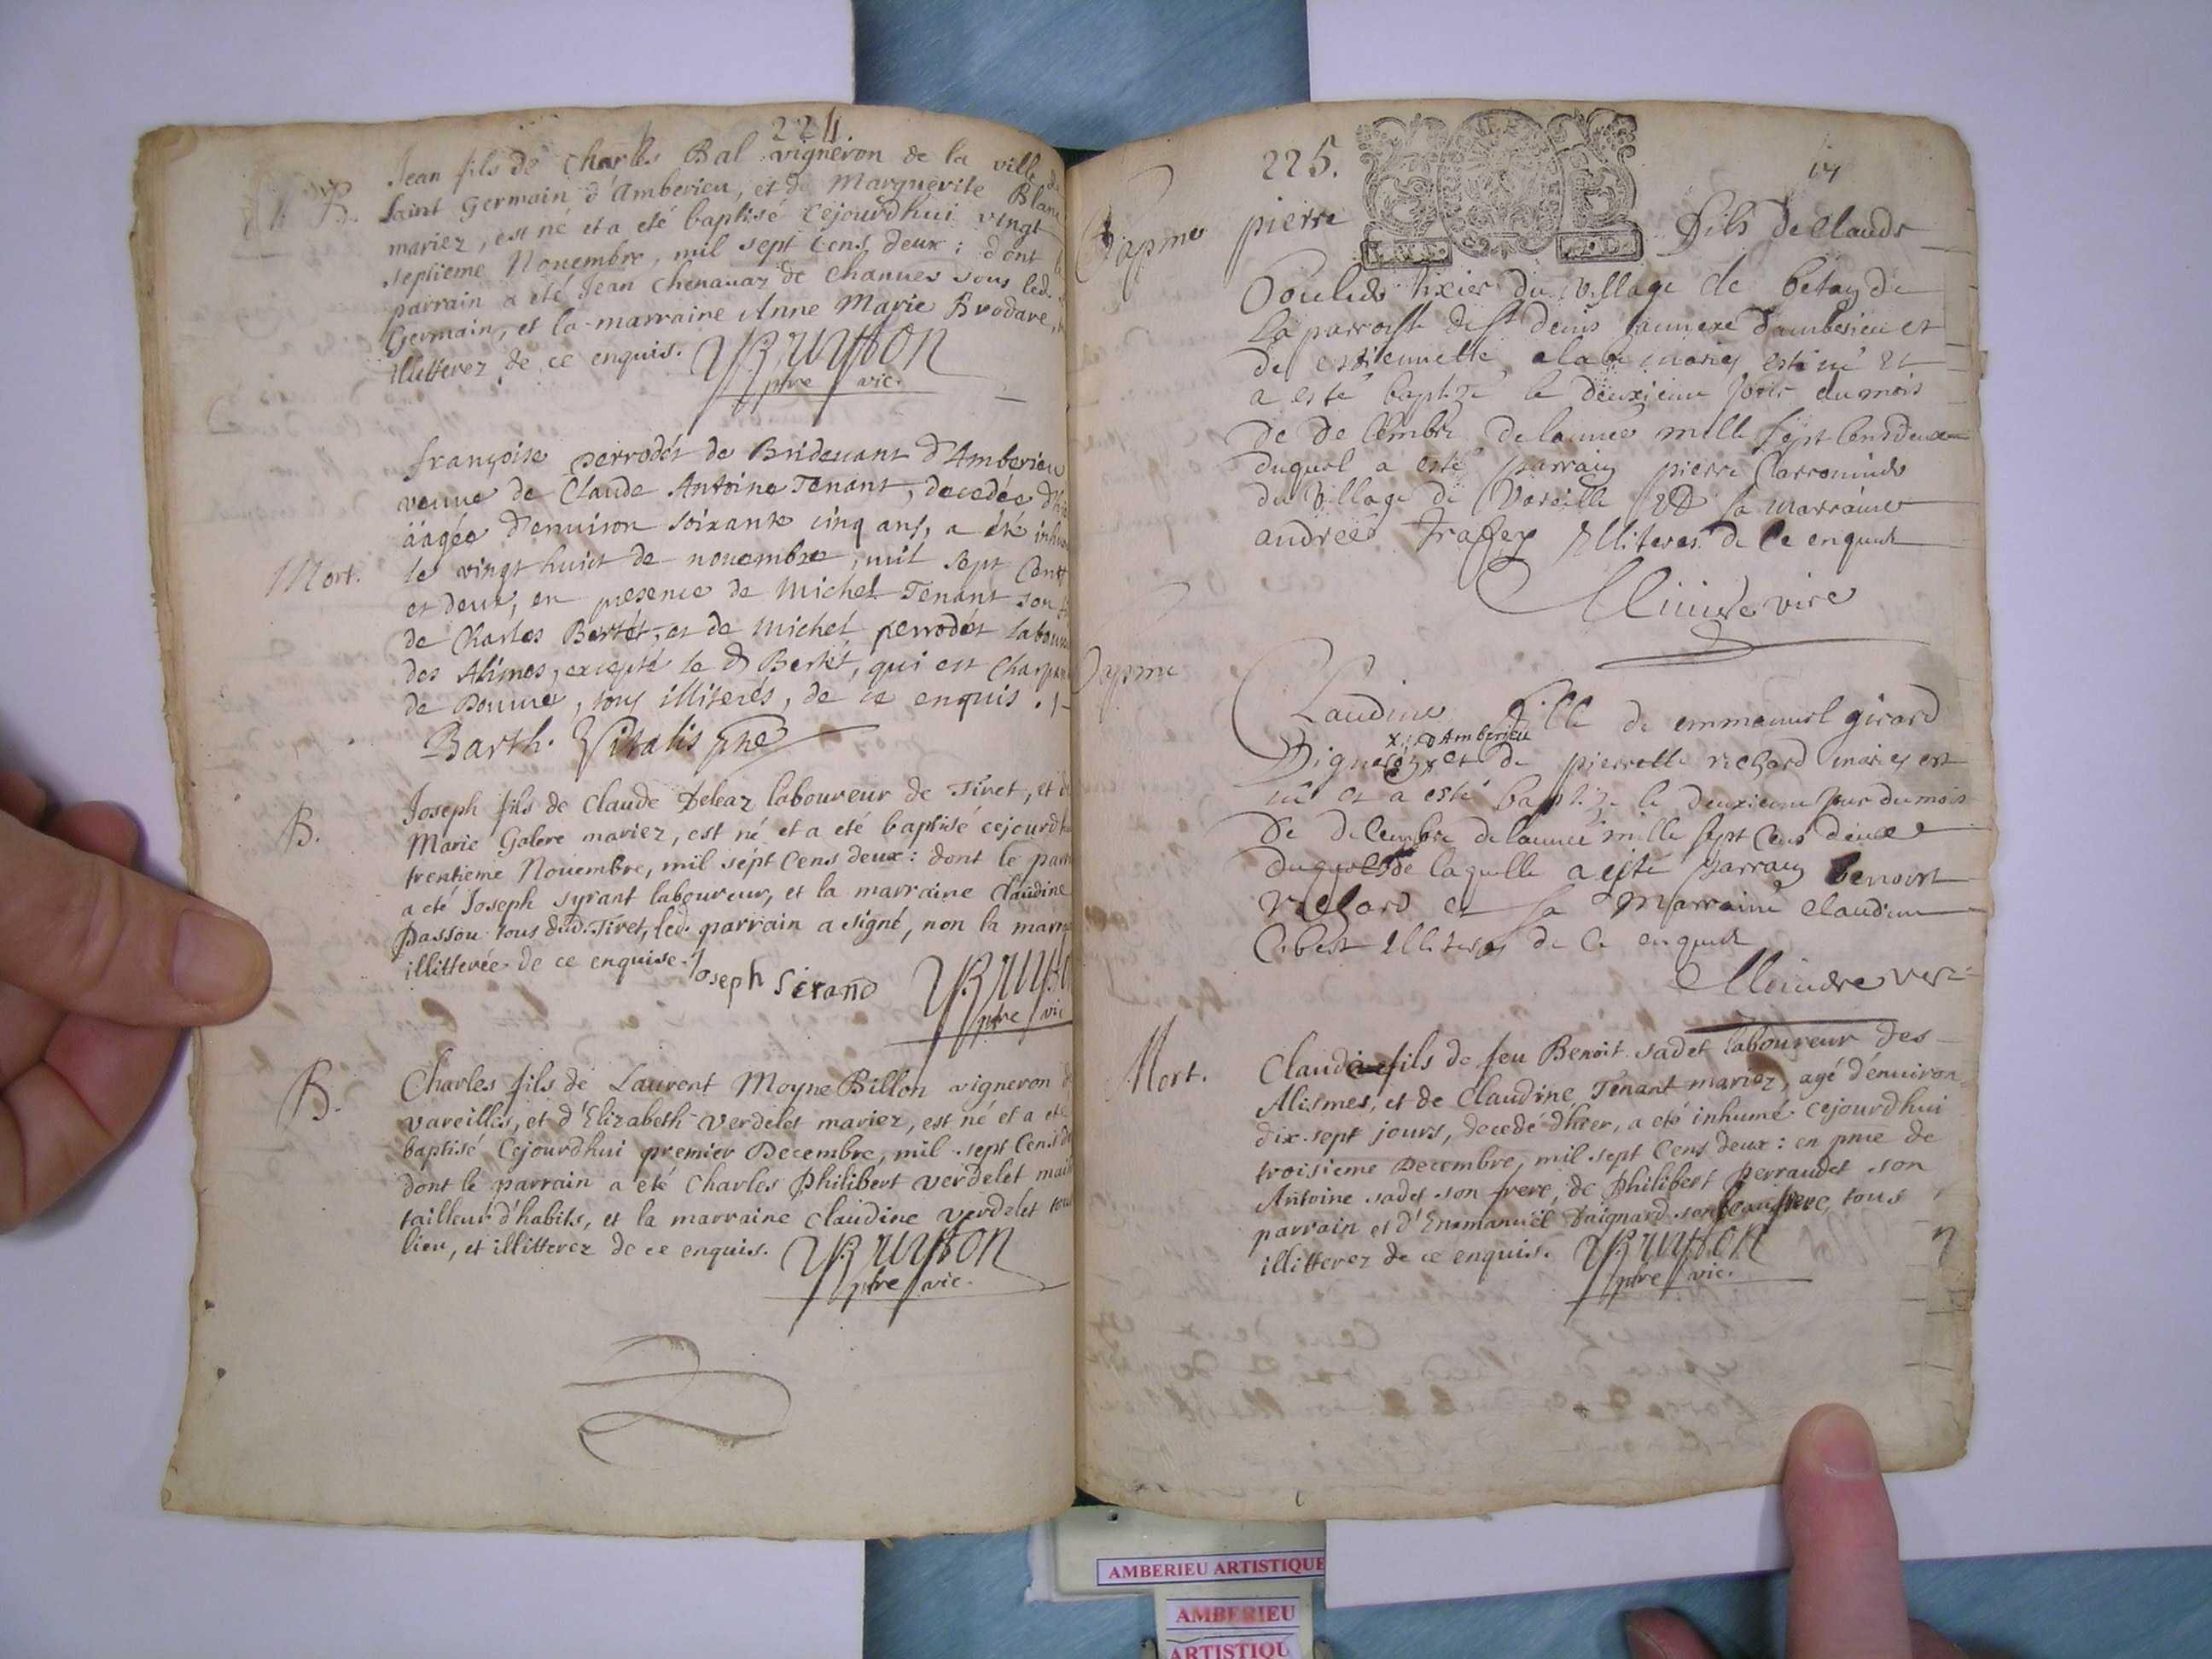 224.
B.
Jean fils de Charles Bal vigneron de la ville de
Saint Germain d'Amberieu, et de Marguerite Blanc
mariez, est né et a eté baptisé cejourd'hui vingt
septieme Novembre, mil sept Cens deux: dont le
parrain a eté Jean Chenavaz de Chanues sous led.
Germain, et la marraine Anne Marie Brodare,
illitterez de ce enquis.
ptre vic.
Mort.
françoise perrodet de Bridevant d'Amberieu
veuve de Claude Antoine Tenant, decedée d'hier
äagée d'environ soixante cinq ans, a été inhu
le vingt huict de novembre, mil sept Cent
et deux, en presence de Michel Tenant son
de Charles Bertet, et de Michel perrodet labou
des Alimes, excepté le d Bertet, qui est Charpen
de Douvre, tous illiterés, de ce enquis.
Barth. Vitalis ptre
B.
Joseph fils de Claude Deleaz laboureur de Tiret, et de
Marie Galere mariez, est né et a eté baptisé cejourd'hu
trentieme Novembre, mil sept Cens deux: dont le parr
a eté Joseph Syrant laboureur, et la marraine Claudine
Passou tous dud. Tiret, led. parrain a signé, non la marr
illitterée de ce enquise.
Joseph Sirand
ptre vic
B.
Charles fils de Laurent Moyne Billon vigneron de
vareilles, et d'Elizabeth Verdelet mariez, est né et a eté
baptisé Cejourd'hui premier Decembre, mil sept Cens de
dont le parrain a eté Charles Philibert verdelet mai
tailleur d'habits, et la marraine Claudine verdelet tou
lieu, et illitterez de ce enquis.
ptre vic.
225.
17
pierre fils de Claude
du village de betay de
la parroisse de st denis annexe d'amberieu et
de estiennette mariez est né et
a esté baptizé le deuxieme jour du mois
de decembre de lannee mille sept cens deux
duquel a esté parrain pierre Carronnier
du village de Vareille et la marraine
andree illiteres de ce enquis
Baptme
Claudine fille de emmanuel girard
x d'Amberieu
Vigneron x et de pierrette richard mariez est
né et a esté baptizé le deuxieme jour du mois
de decembre de lannee mille sept Cens deux
de laquelle a esté parrain benoist
richard et la Marraine Claudine
illiteres de ce enquis
Mort.
Claude fils de feu Benoit sadet laboureur des
Alismes, et de Claudine Tenant mariez, agé d'environ
dix-sept jours, decedé d'hier, a eté inhumé cejourd'hui
troisieme Decembre, mil sept Cens deux: en pnce de
Antoine sadet son frere, de Philibert Perraudet son
parrain et d'Emmanuël Daignard son beau frere, tous
illitterez de ce enquis.
ptre vic.
AMBERIEU ARTISTIQUE
AMBERIEU
ARTISTIQU